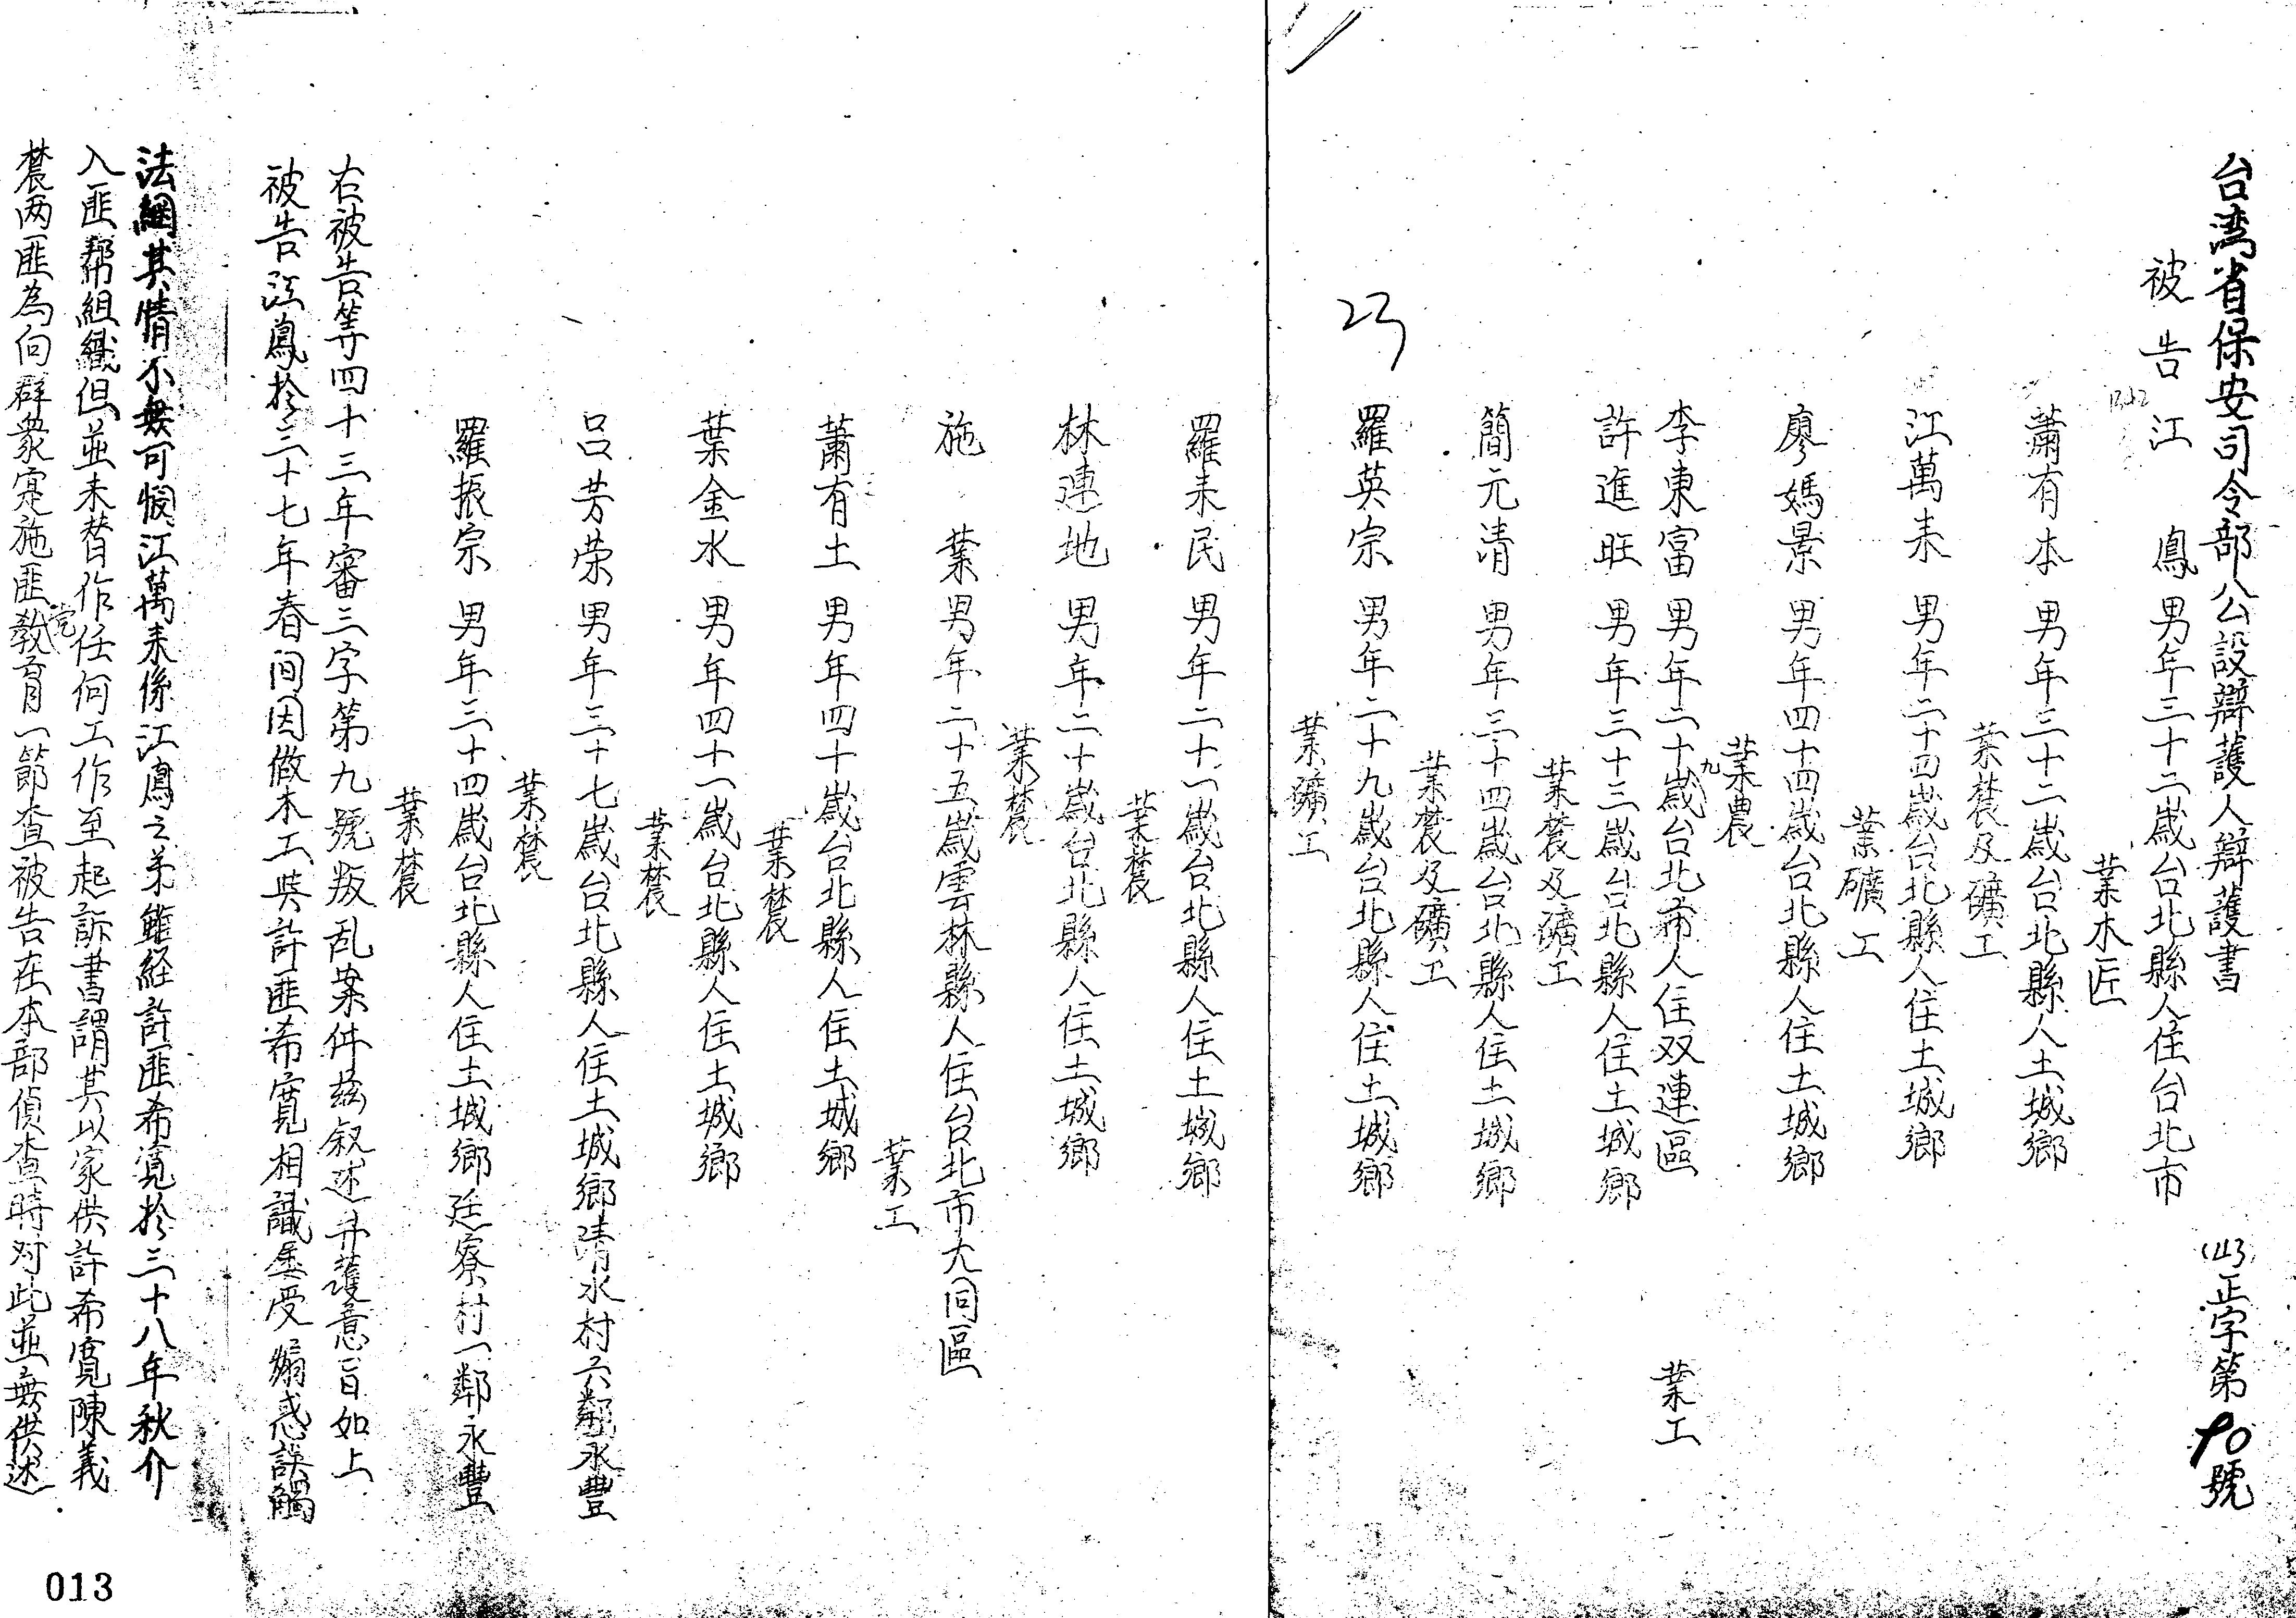 台湾省保安司令部公設辯護人辯護書 (43)正字第90號
被告江 鳳 男年三十二歲台北縣人住台北市
業木匠
蕭有本 男年三十二歲台北縣人土城鄉
業農及礦工
江萬来 男年二十四歲台北縣人住土城鄉
業礦工
廖媽景 男年四十四歲台北縣人住土城鄉
業農
李東富 男年二十九歲台北市人住双連區 業工
許進旺 男年三十三歲台北縣人住土城鄉
業農及礦工
簡元清 男年三十四歲台北縣人住土城鄉
業農及礦工
羅英宗 男年二十九歲台北縣人住土城鄉
業礦工
23
羅来民 男年二十一歲台北縣人住土城鄉
業農
林連地 男年二十歲台北縣人住土城鄉
業農
施 業 男年二十五歲雲林縣人住台北市大同區
業工
蕭有土 男年四十歲台北縣人住土城鄉
業農
葉金水 男年四十一歲台北縣人住土城鄉
業農
呂芳荣 男年三十七歲台北縣人住土城鄉清水村六鄰永豐
業農
羅振宗 男年三十四歲台北縣人住土城鄉廷寮村一鄰永豐
業農
右被告等四十三年審三字第九號叛乱案件茲叙述弁護意旨如上
被告江鳳於三十七年春间因做木工與許匪希寬相識屢受煽惑誤觸
法網其情不無可悯江萬来係江鳳之弟雖経許匪希寬於三十八年秋介
入匪幫組織但並未替作任何工作至起訴書謂其以家供許希寬陳義
農两匪為向群眾寔施匪党教育一節查被告在本部偵查時对此並無供述
013